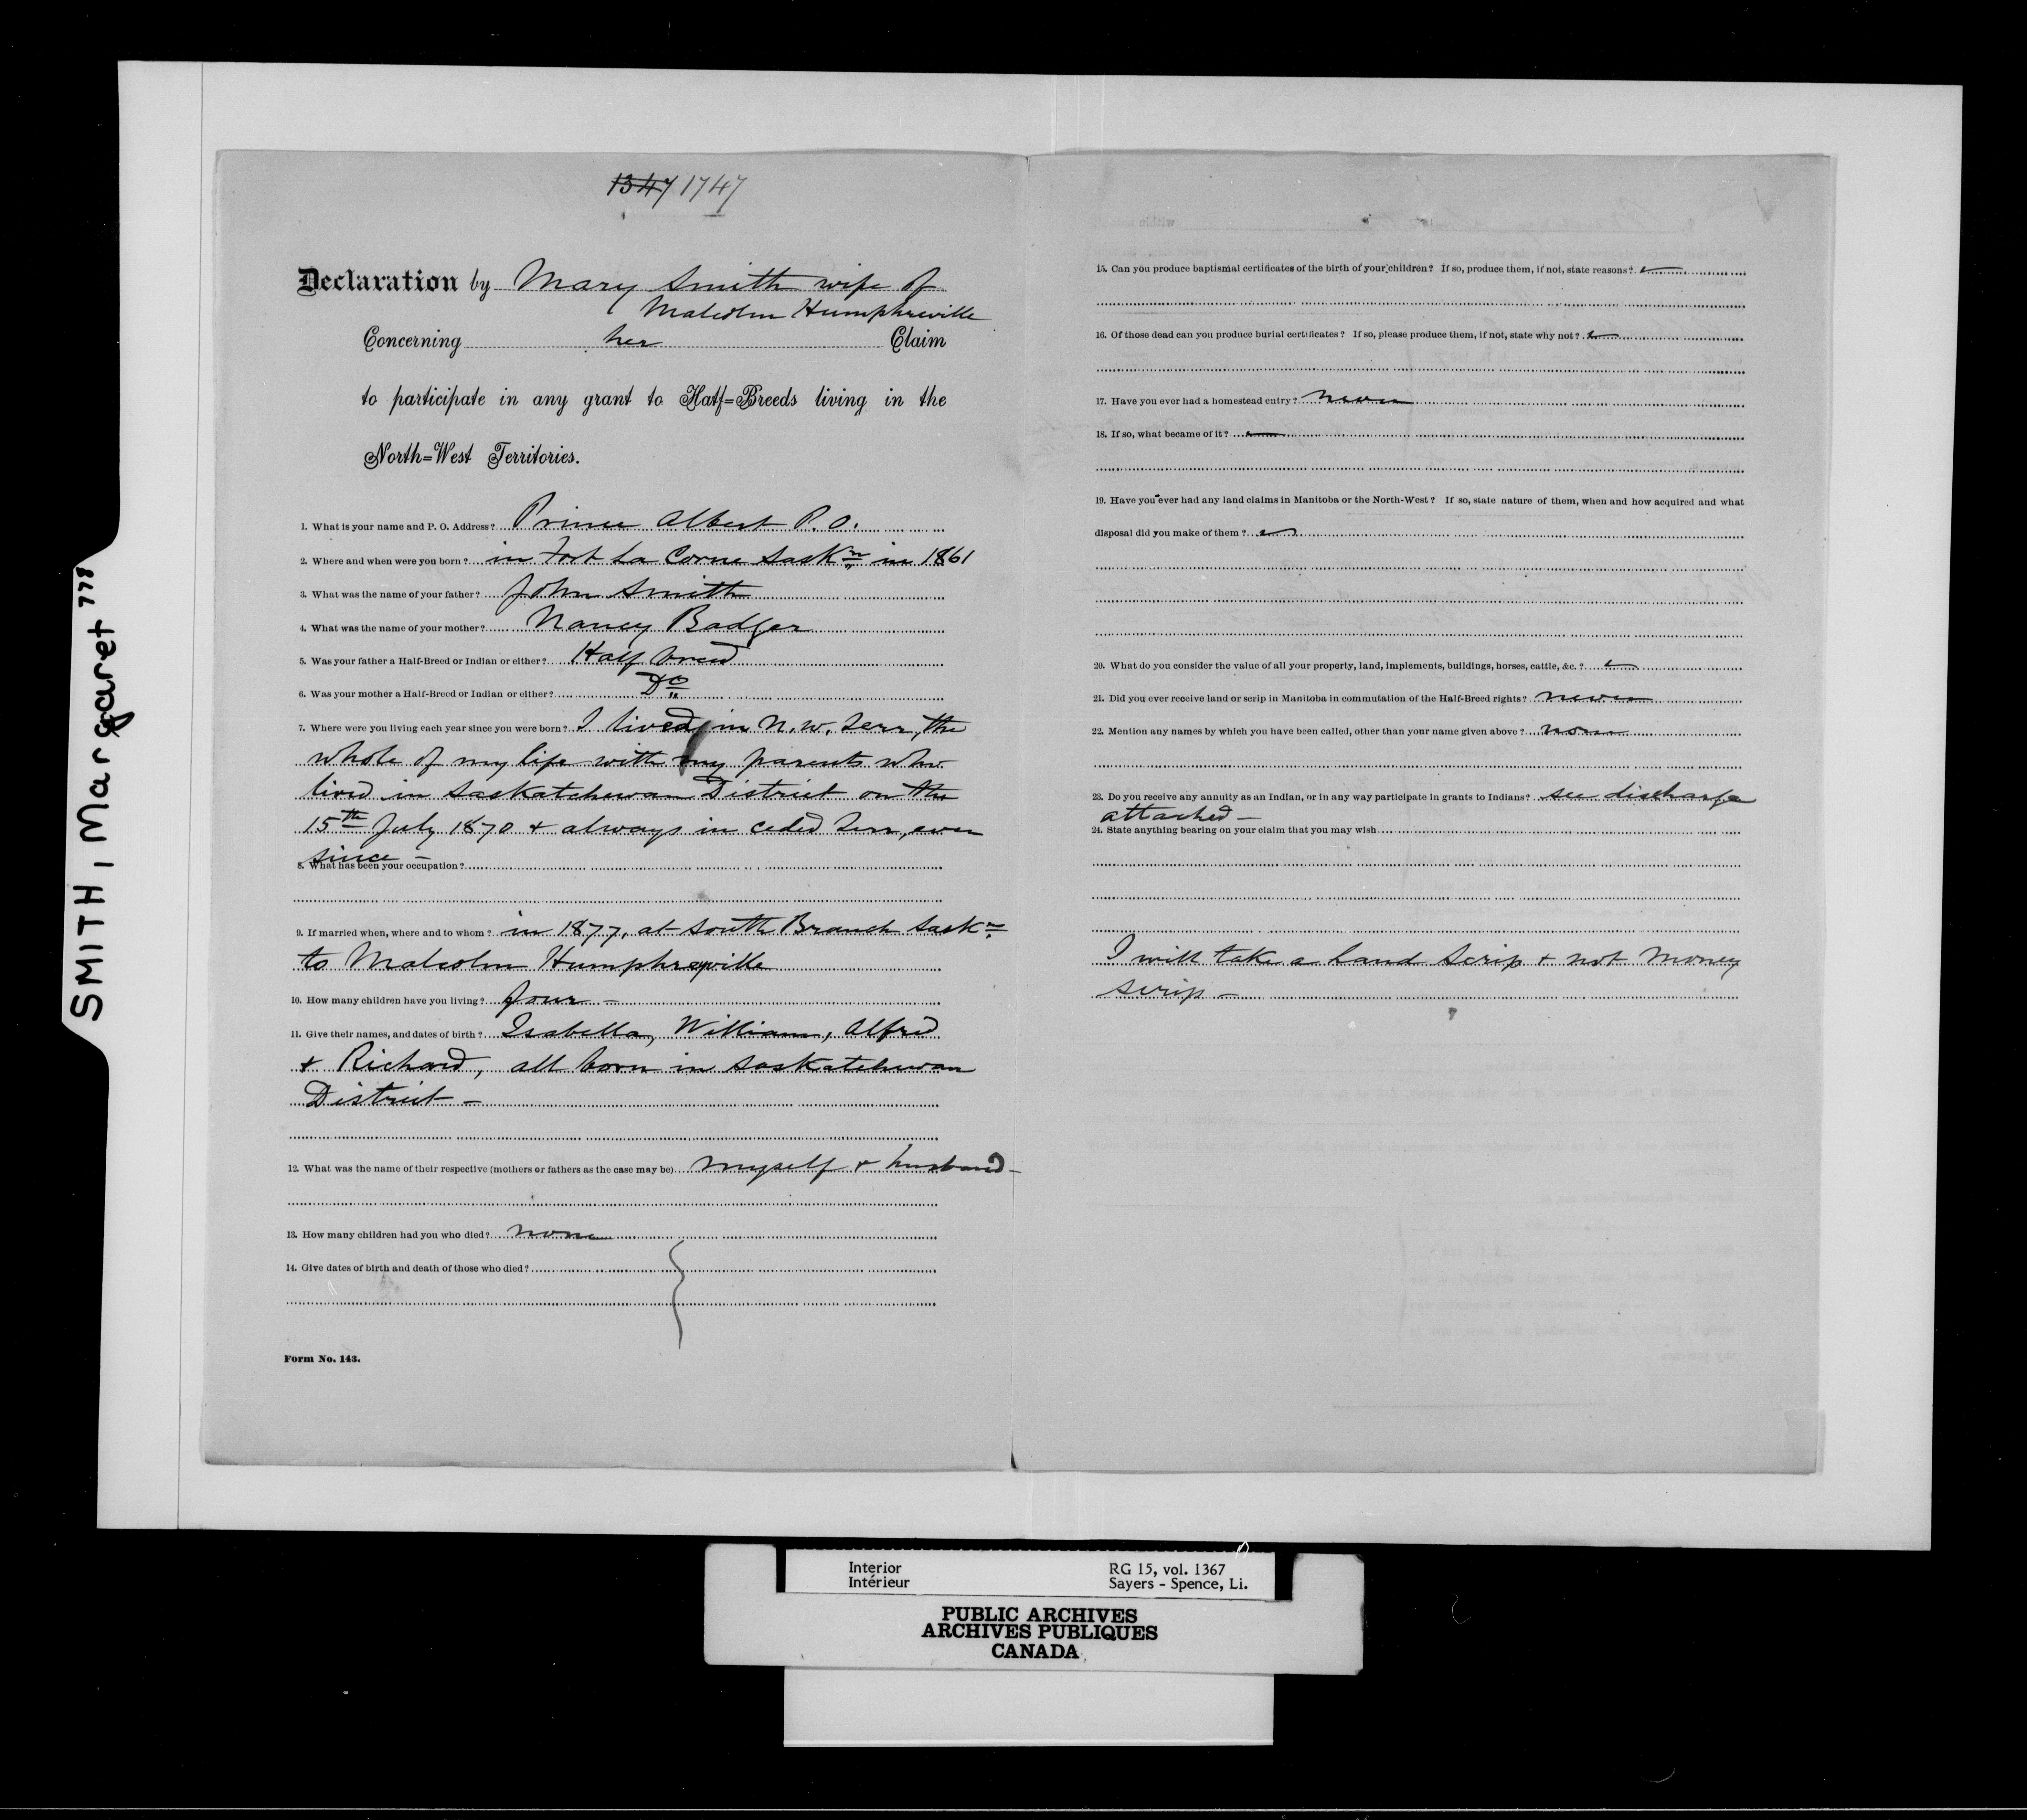 SMITH, Margaret 778
1347 1747
Declaration by Mary Smith wife of
Malcolm Humphreville
Concerning her Claim
to participate in any grant to Half=Breeds living in the
North=West Territories.
1. What is your name and P. O. Address? Prince Albert P.O.
2. Where and when were you born? in Fort La Corne Saskn in 1861
3. What was the name of your father? John Smith
4. What was the name of your mother? Nancy Badger
5. Was your father a Half-Breed or Indian or either? Half breed
6. Was your mother a Half-Breed or Indian or either? Do
7. Where were you living each year since you were born? I lived in N.W. Terr, the
whole of my life with my parents who
lived in Saskatchewan District on the
15th July 1870 & always in ceded Terr, ever
since –
8. What has been your occupation?
9. If married when, where and to whom? in 1877, at South Branch Saskn
to Malcolm Humphreyville
10. How many children have you living? four –
11. Give their names, and dates of birth? Isabella, William, Alfred
& Richard, all born in Saskatchewan
District –
12. What was the name of their respective (mothers or fathers as the case may be) myself & husband –
13. How many children had you who died? none
14. Give dates of birth and death of those who died?
Form No. 143.
15. Can you produce baptismal certificates of the birth of your children? If so, produce them, if not, state reasons?
16. Of those dead can you produce burial certificates? If so, please produce them, if not, state why not?
17. Have you ever had a homestead entry? never
18. If so, what became of it?
19. Have you ever had any land claims in Manitoba or the North-West? If so, state nature of them, when and how acquired and what
disposal did you make of them?
20. What do you consider the value of all your property, land, implements, buildings, horses, cattle, &c.?
21. Did you ever receive land or scrip in Manitoba in commutation of the Half-Breed rights? never
22. Mention any names by which you have been called, other than your name given above? none
23. Do you receive any annuity as an Indian, or in any way participate in grants to Indians? see discharge
attached –
24. State anything bearing on your claim that you may wish
I will take a Land Scrip & not Money
scrip –
Interior RG 15, vol. 1367
Intérieur Sayers - Spence, Li.
PUBLIC ARCHIVES
ARCHIVES PUBLIQUES
CANADA